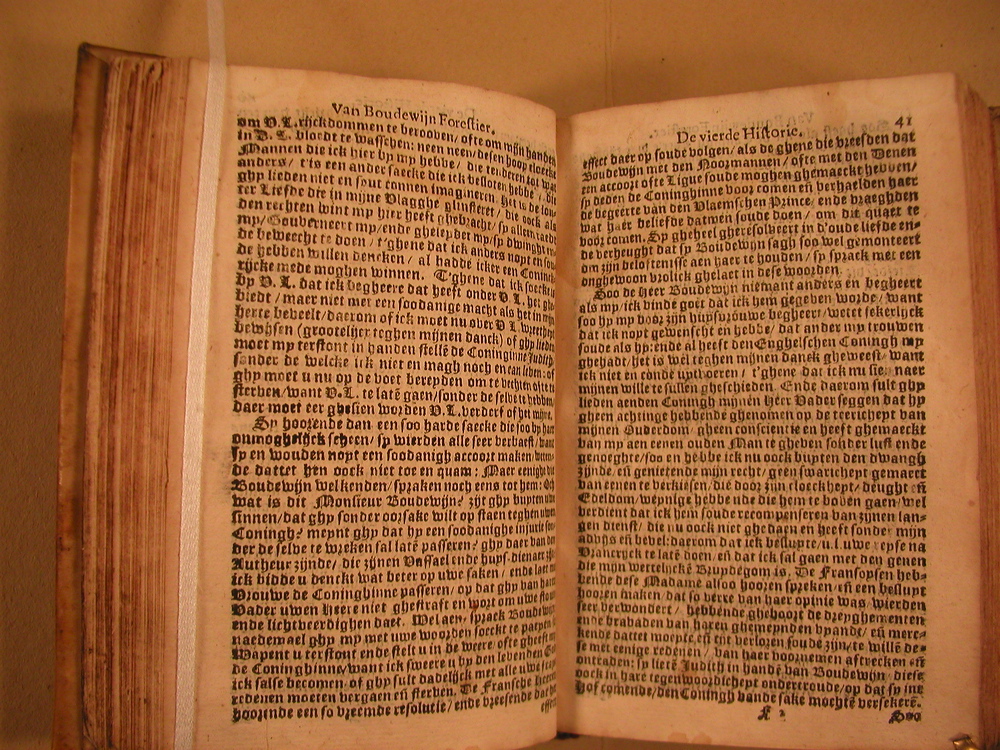 Van Boudewijn Forestier.
om V.L. rijckdommen te berooven / ofte om mijn handen
in V. L. bloedt te wasschen: neen neen / desen hoop cloecke
Mannen die ick hier by my hebbe / die tenderen tot wat
anders / t'is een ander saecke die ick besloten hebbe / die
ghy lieden niet en sout connen imagineren. Het is de lou-
ter Liefde die in mijne Vlagghe glinstert / die oock als
den rechten wint my hier heeft ghebracht / sy alleen
my / Gouberneert my / ende gheleydet my / sy dwinght
de beweecht te doen / t'ghene dat ick anders noyt en sou-
de hebben willen dencken / al hadde icker een Coninck-
rijcke mede moghen winnen. T'ghene dat ick soecke
by V. L. dat ick begheere dat heeft onder V L. het ghe-
biedt / maer niet met een soodanige macht als het in mijn
herte beveelt / daerom of ick moet nu over V L.
bewijsen (grootelijcx teghen mijnen danck) of ghy lieden
moet my terstont in handen stellē de Coninginne Judith /
sonder de welcke ick niet en magh noch en can leven: of
ghy moet u nu op de voet bereyden om te vechten ofte te
sterven / want V.L. te latē gaen / sonder de selve te hebben /
daer moet eer ghesien worden V.L. verderf of het mijne.
Sy hoorende dan een soo harde saecke die soo by haer
onmoghelijck scheen / sy wierden alle seer verbaest / want
sy en wouden noyt een soodanigh accoort maken /
de dattet hen oock niet toe en quam: Maer eenighe die
Boudewijn wel kenden / spraken noch eens tot hem: Och
wat is dit Monsieur Boudewijn? zijt ghy buyten uwe
sinnen / dat ghy sonder oorsake wilt op staen teghen uwen
Coningh? meynt ghy dat hy een soodanighe injurie son-
der de selve te wreken sal latē passeren? ghy daer van den
Autheur zijnde / die zijnen Vassael ende huys-dienaer zijt
ick bidde u denckt wat beter op uwe saken / ende laet me
Vrouwe de Coninginne passeren / op dat ghy van haren
Vader uwen Heere niet ghestraft en wort om uwe stou
ende lichtveerdigheden daet. Wel aen / sprack Boudewijn
naedemael ghy my met uwe woorden soeckt te paeyen
Wapent u terstont ende stelt u in de weere / ofte gheeft my
de Coninghinne / want ick sweere u by den levenden God
ick salse becomen / of ghy sult dadelijck met alle uwe
redenen moeten vergaen eñ sterven. De Fransche Heeren
hoorende een so vreemde resolutie / ende vreesende dat het
effect
De vierde Historie. 41
effect daer op soude volgen / als de ghene die vreesden dat
Boudewijn met den Noormannen / ofte met den Denen
een accoort ofte Ligue soude moghen ghemaeckt hebben /
sy deden de Coninghinne voor comen eñ verhaelden haer
de begeerte van den Vlaemschen Prince / ende vraeghden
wat haer beliefde datmen soude doen / om dit quaet te
voor comen. Sy gheheel gheresolveert in d'oude liefde en-
de verheught dat sy Boudewijn sagh soo wel gemonteert
om zijn beloftenisse aen haer te houden / sy sprack met een
onghewoon vrolick ghelaet in dese woorden.
Soo de Heer Boudewijn niemant anders en begheert
als my / ick vinde goet dat ick hem gegeven worde / want
soo hy my voor zijn huysvrouwe begheert / wetet sekerlijck
dat ick noyt gewenscht en hebbe / dat ander my trouwen
soude als hy: ende al heeft den Enghelschen Coningh my
ghehadt / het is wel teghen mijnen danck gheweest / want
ick niet en conde uptvoeren / t'ghene dat ick nu sie / naer
mijnen wille te sullen gheschieden. Ende daerom sult ghy
lieden aenden Coningh mijnen Heer Vader seggen dat hy
gheen achtinge hebbende ghenomen op de teericheyt van
mijnen Ouderdom / gheen conscientie en heeft ghemaeckt
van my aen eenen ouden Man te gheven sonder lust ende
genoeghte / soo en hebbe ick nu oock buyten den dwangh
zijnde / eñ genietende mijn recht / geen swaricheyt gemaect
van eenen te verkiesen / die door zijn cloeckheyt / deught eñ
Edeldom / weynige hebbende die hem te boven gaen / wel
verdient dat ick hem soude recompenseren van zijnen lan-
gen dienst / die nu oock niet ghedaen en heeft sonder mijn
advijs eñ bevel: daerom dat ick besluyte / u.l. uwe reyse na
Vrancryck te latē doen / eñ dat ick sal gaen met den genen
die mijn wettelijckē Bruydegom is. De Fransoysen heb-
bende dese Madame alsoo hooren spreken / eñ een besluyt
hooren maken dat so verre van haer opinie was / wierden
seer verwondert / hebbende ghehoort de dreyghementen
ende brabaden van haren ghemeynden vyandt / eñ merc-
kende dattet moeyte eñ tijt verloren soude zijn / te willē de-
se met eenige redenen / van haer voornemen aftrecken eñ
ontraden: sy lietē Judith in handē van Boudewijn / diese
oock in hare tegenwoordicheyt ondertroude / op dat sy ine
Hof comende / den Coningh vande sake mochtē versekerē.
F 2 Soo